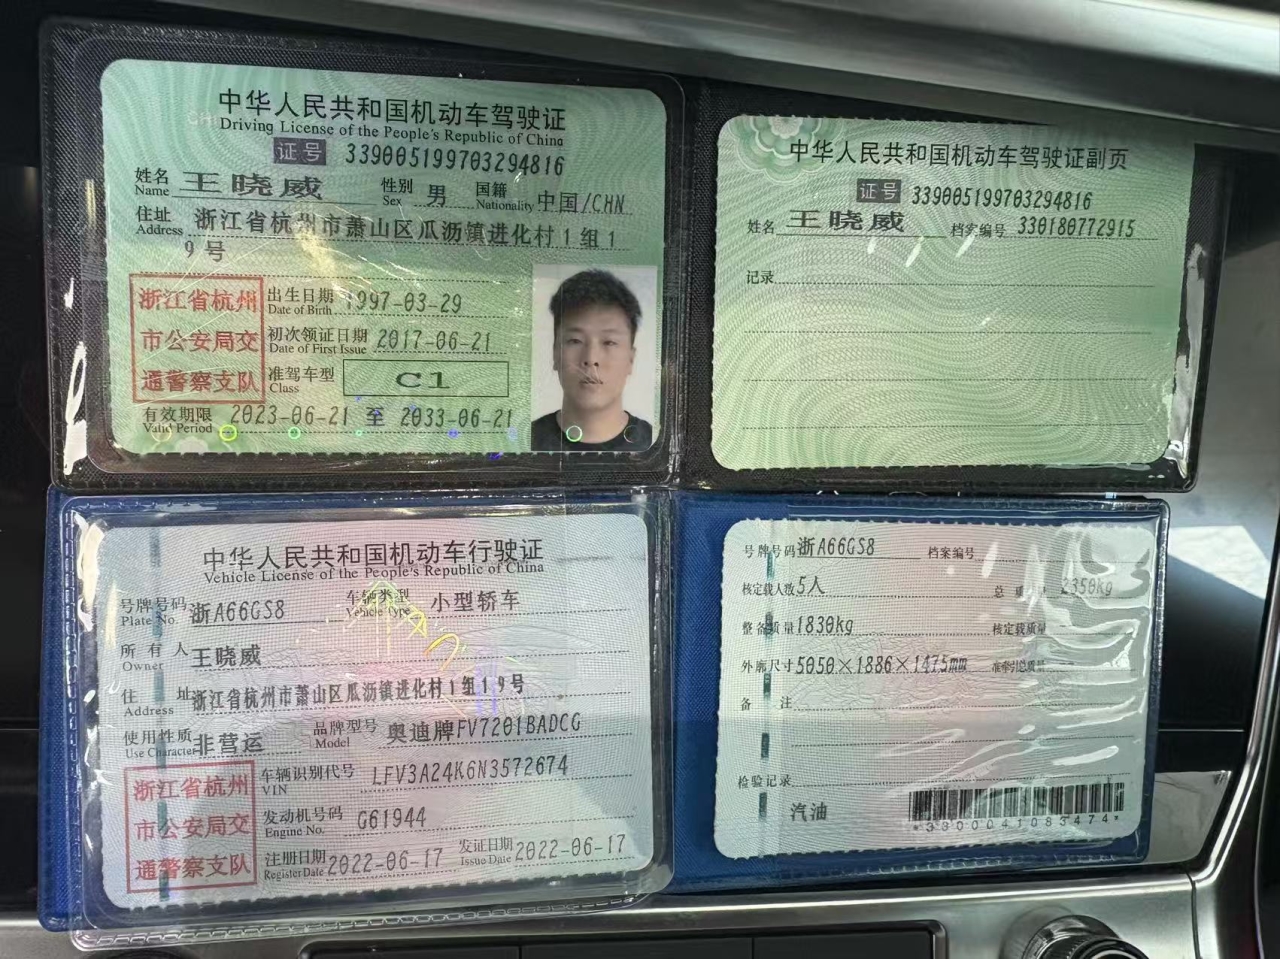 中华人民共和国机动车驾驶证
Driving License of the People's Republic of China
证号 339005199703294816
姓名 王晓威 性别 男 国籍 中国/CHN
Name Sex Nationality
住址 浙江省杭州市萧山区瓜沥镇进化村1组1
Address
9号
浙江省杭州
市公安局交
通警察支队
出生日期 1997-03-29
Date of Birth
初次领证日期 2017-06-21
Date of First Issue
准驾车型 C1
Class
有效期限 2023-06-21 至 2033-06-21
Valid Period
中华人民共和国机动车驾驶证副页
证号 339005199703294816
姓名 王晓威 档案编号 330180772915
记录
中华人民共和国机动车行驶证
Vehicle License of the People's Republic of China
号牌号码 浙A66GS8 车辆类型 小型轿车
Plate No. Vehicle Type
所有人 王晓威
Owner
住址 浙江省杭州市萧山区瓜沥镇进化村1组19号
Address
使用性质 非营运 品牌型号 奥迪牌FV7201BADCG
Use Character Model
浙江省杭州
市公安局交
通警察支队
车辆识别代号 LFV3A24K6N3572674
VIN
发动机号码 G61944
Engine No.
注册日期 2022-06-17 发证日期 2022-06-17
Register Date Issue Date
号牌号码 浙A66GS8 档案编号
核定载人数 5人 总质量 2350kg
整备质量 1830kg 核定载质量
外廓尺寸 5050×1886×1475mm 准牵引总质量
备注
检验记录
汽油
*3300041083474*